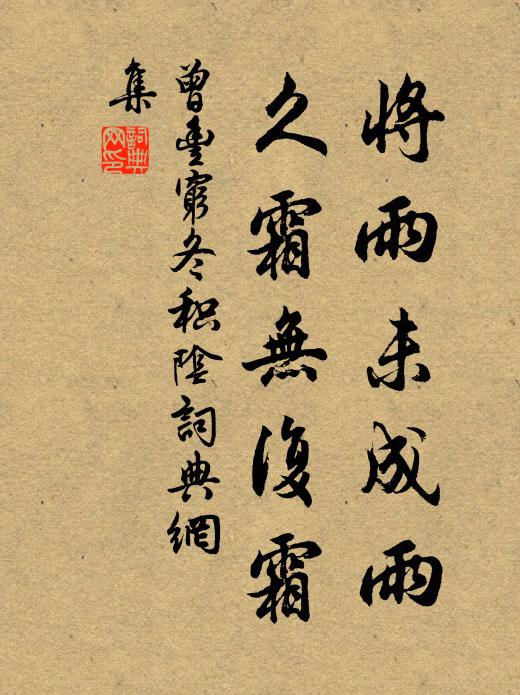 將雨未成雨
久霜無復霜
曾豐窮冬積陰詞典網
集
詞典
网印